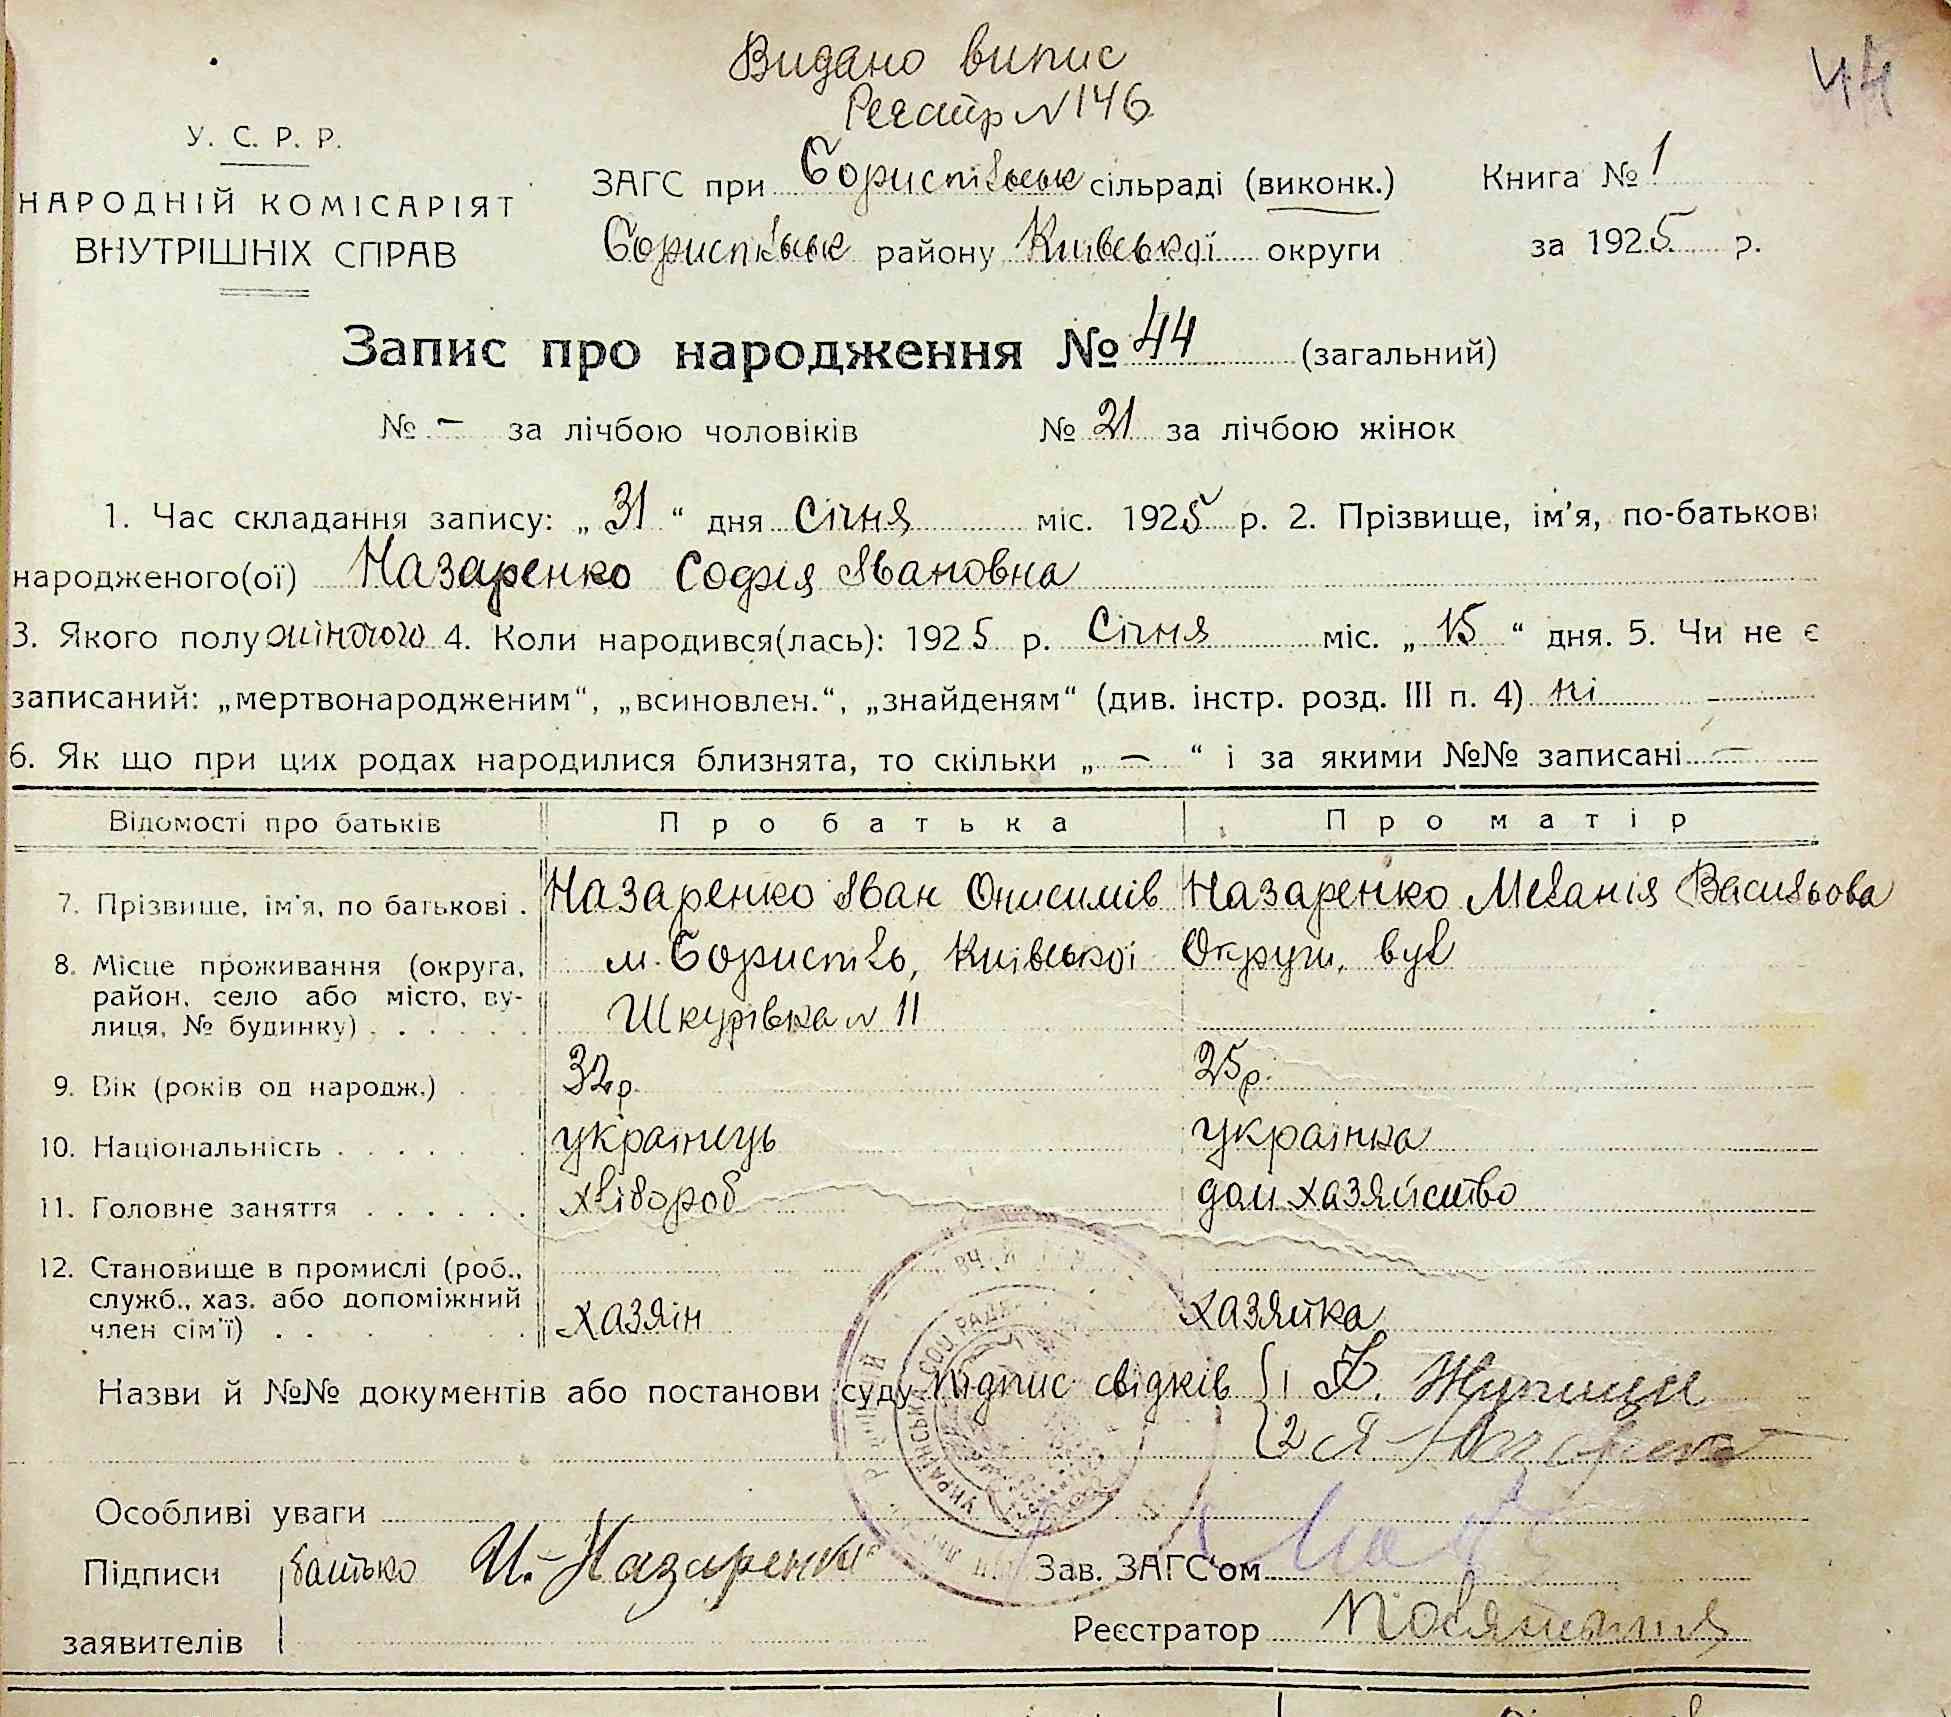 Видано випис
Реєстр N 146
44
У. С. Р. Р.
НАРОДНІЙ КОМІСАРІЯТ
ВНУТРІШНІХ СПРАВ
ЗАГС при Бориспільськ сільраді (виконк.)
Бориспільськ району Київської округи
Книга № 1
за 1925 р.
Запис про народження № 44 (загальний)
№ – за лічбою чоловіків № 21 за лічбою жінок
1. Час складання запису: „31“ дня Січня міс. 1925 р. 2. Прізвище, ім'я, по-батькові
народженого(ої) Назаренко Софія Івановна
3. Якого полу жіночого 4. Коли народився(лась): 1925 р. Січня міс. „15“ дня. 5. Чи не є
записаний: „мертвонародженим“, „всиновлен.“, „знайденям“ (див. інстр. розд. III п. 4) ні –
6. Як що при цих родах народилися близнята, то скільки „–“ і за якими №№ записані –
Відомості про батьків Про батька Про матір
7. Прізвище, ім'я, по батькові . Назаренко Іван Онисимів Назаренко Меланія Васильова
8. Місце проживання (округа, м. Бориспіль, Київської Округи, вул
район, село або місто, ву-
лиця, № будинку) . . . . . . Шкурівка N 11
9. Вік (років од народж.) . 32 р. 25 р.
10. Національність . . . . . українець українка
11. Головне заняття . . . . . . хлібороб дом хазяйство
12. Становище в промислі (роб.,
служб., хаз. або допоміжний
член сім'ї) . . хазяін хазяйка
Назви й №№ документів або постанови суду Підпис свідків 1
2
УКРАЇНСЬКА СОЦ РАДЯ
Особливі уваги
Підписи батько И. Назаренко Зав. ЗАГС'ом
заявителів Реєстратор